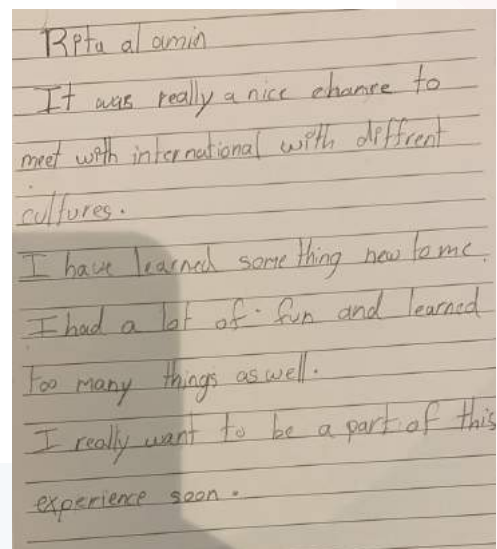 Rptu al amin
It was really a nice chance to
meet with international with diffrent
cultures.
I have learned something new to me.
I had a lot of fun and learned
too many things as well.
I really want to be a part of this
experience soon.